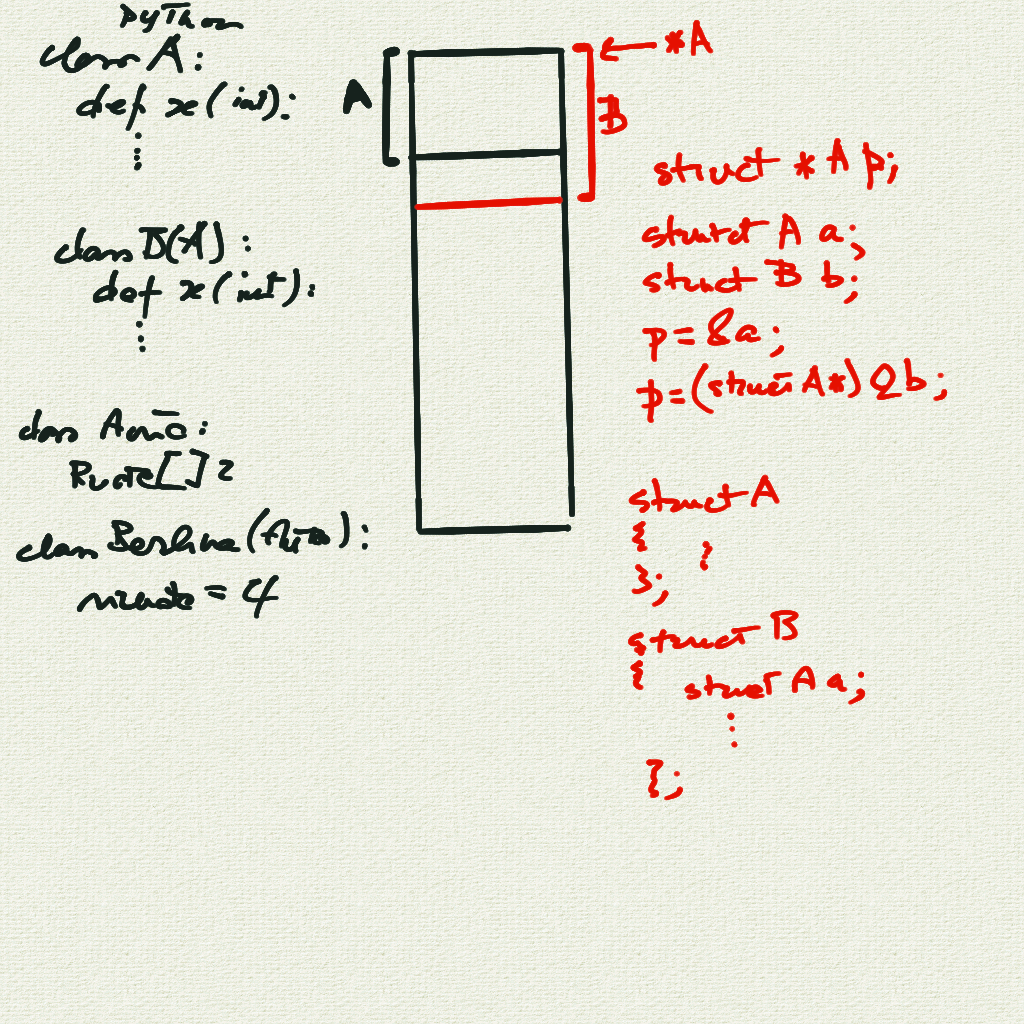 Python
class A:
def x(int):
⋮
class B(A):
def x(int):
⋮
class Auto:
Ruote[] 2
class Berlina(Auto):
ruote = 4
A
*A
B
struct *A p;
struct A a;
struct B b;
p = &a;
p = (struct A*) &b;
struct A
{
⋮
};
struct B
{
struct A a;
⋮
};